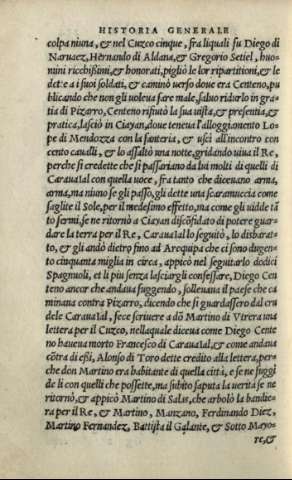 HISTORIA GENERALE
colpa niuna, & nel Cuzco cinque, fra liquali fu Diego di
Naruaez, Hernando di Aldana, & Gregorio Setiel, huo-
mini ricchißimi, & honorati, pigliò le lor ripartitioni, & le
dette a i suoi soldati, & caminò verso doue era Centeno, pu
blicando che non gli voleua fare male, saluo ridurlo in gra-
tia di Pizarro, Centeno rifiutò la sua uista, & presentia, &
pratica, lasciò in Ciayan, doue teneua l'alloggiamento Lo-
pe di Mendozza con la fanteria, & uscì all'incontro con
cento caualli, & lo assaltò una notte, gridando uiua il Re,
perche si credette che si passariano da lui molti di quelli di
Carauaial con quella voce, fra tanto che diceuano arma,
arma, ma niuno se gli passò, gli dette una scaramuccia come
saglite il Sole, per il medesimo effetto, ma come gli uidde tā
to fermi, se ne ritornò a Ciayan discōfidato di potere guar-
dare la terra per il Re, Carauaial lo seguitò, lo disbarat-
to, & gli andò dietro fino ad Arequipa che ci sono dugen-
to cinquanta miglia in circa, appicò nel seguitarlo dodici
Spagnuoli, et li piu senza lasciargli confessare, Diego Cen
teno ancor che andaua fuggendo, solleuaua il paese che ca
minaua contra Pizarro, dicendo che si guardassero dal cru
dele Carauaial, fece scriuere a dō Martino di Vtrera una
lettera per il Cuzco, nellaquale diceua come Diego Cente
no haueua morto Francesco di Carauaial, & come andaua
cōtra di eßi, Alonso di Toro dette credito alla lettera, per-
che don Martino era habitante di quella città, e se ne fuggì
de li con quelli che possette, ma subito saputa la uerità se ne
ritornò, & appicò Martino di Salas, che arbolò la bandie-
ra per il Re, & Martino, Manzano, Ferdinando Diez,
Martino Fernandez, Battista il Galante, & Sotto Mayo-
re, &